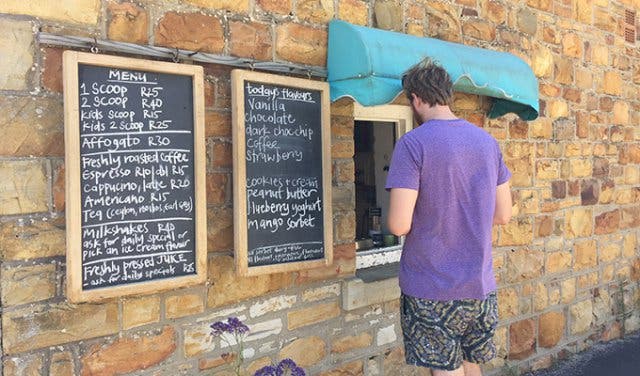 MENU
1 SCOOP R25
2 SCOOP R40
Kids SCOOP R15
Kids 2 SCOOP R25
Affogato R30
Freshly roasted Coffee
Espresso R10|dbl R15
Cappucino, latte R20
Americano R15
Tea (ceylon, rooibos, earl grey)
Milkshakes R40
ask for daily special or
pick an ice cream flavour
Freshly pressed JUICE R25
- ask for daily specials
today's flavours
Vanilla
chocolate
dark choc chip
Coffee
Strawberry
cookies + cream
peanut butter
blueberry yoghurt
mango sorbet